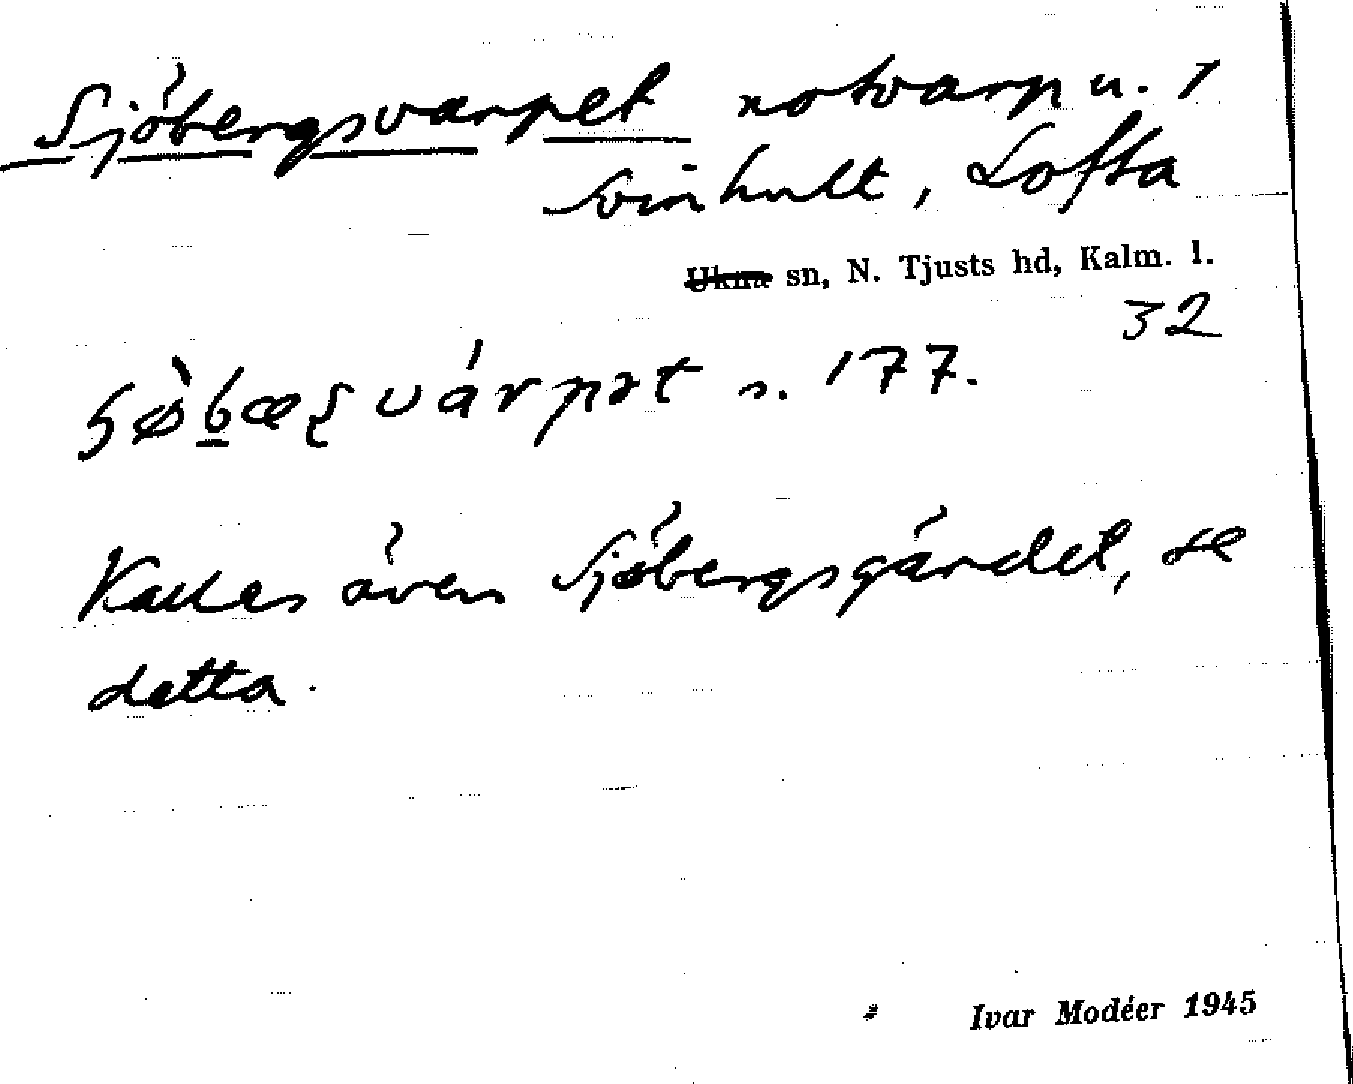 Sjöbergsvarpet notvarp u. 1
Svinhult, Lofta
Ukna sn, N. Tjusts hd, Kalm. l.
32
s. 177.
Kallas även Sjöbergsgärdet, se
detta.
Ivar Modéer 1945